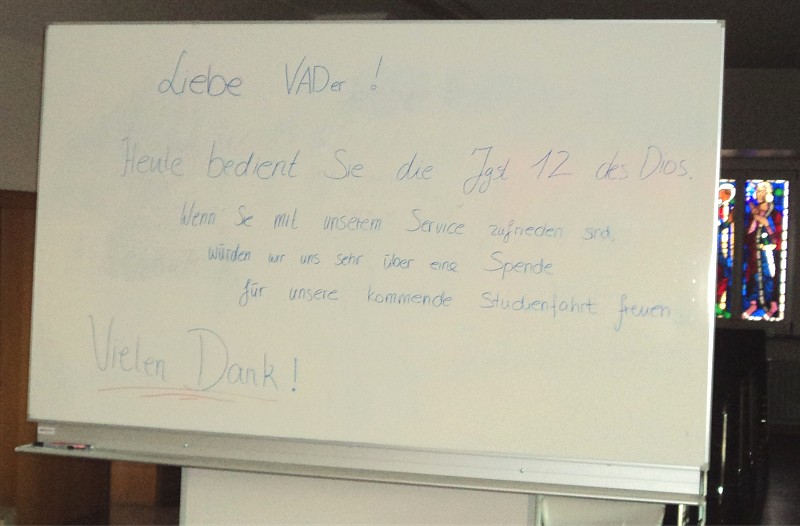 Liebe VADer !
Heute bedient Sie die Jgst 12 des Dios.
Wenn Sie mit unserem Service zufrieden sind,
würden wir uns sehr über eine Spende
für unsere kommende Studienfahrt freuen
Vielen Dank!